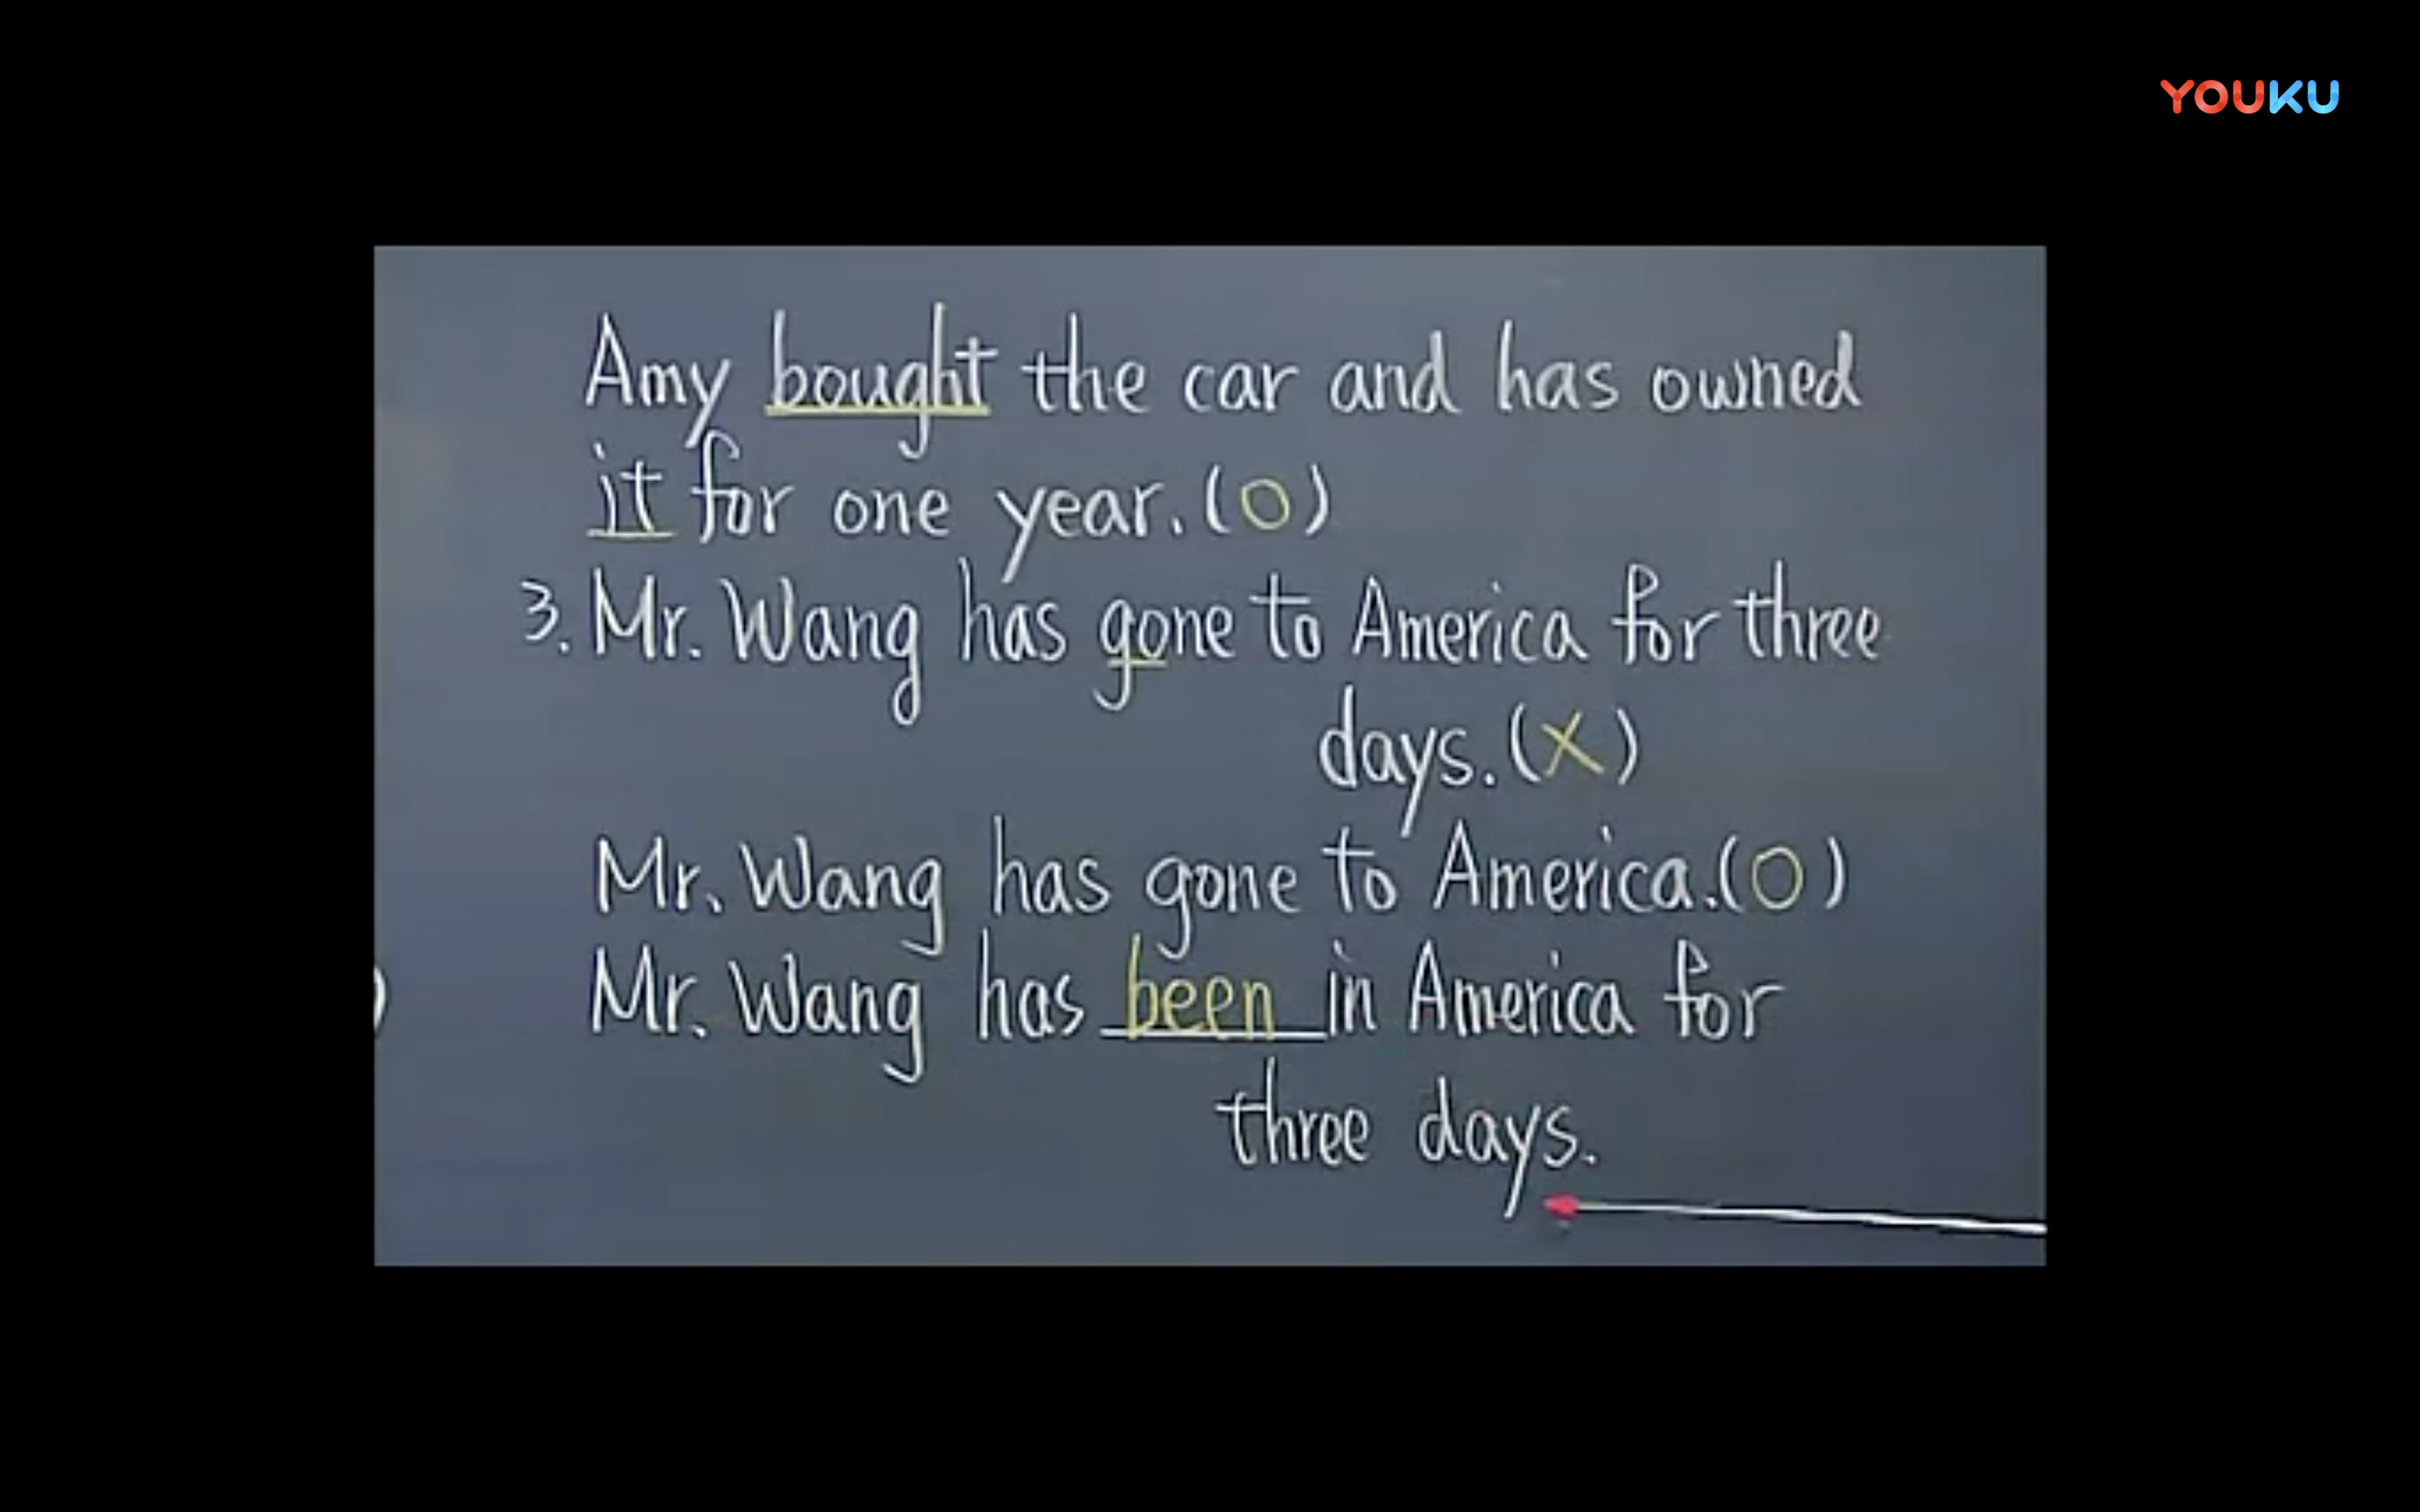 YOUKU
Amy bought the car and has owned
it for one year. (O)
3. Mr. Wang has gone to America for three
days. (X)
Mr. Wang has gone to America. (O)
Mr. Wang has been in America for
three days.